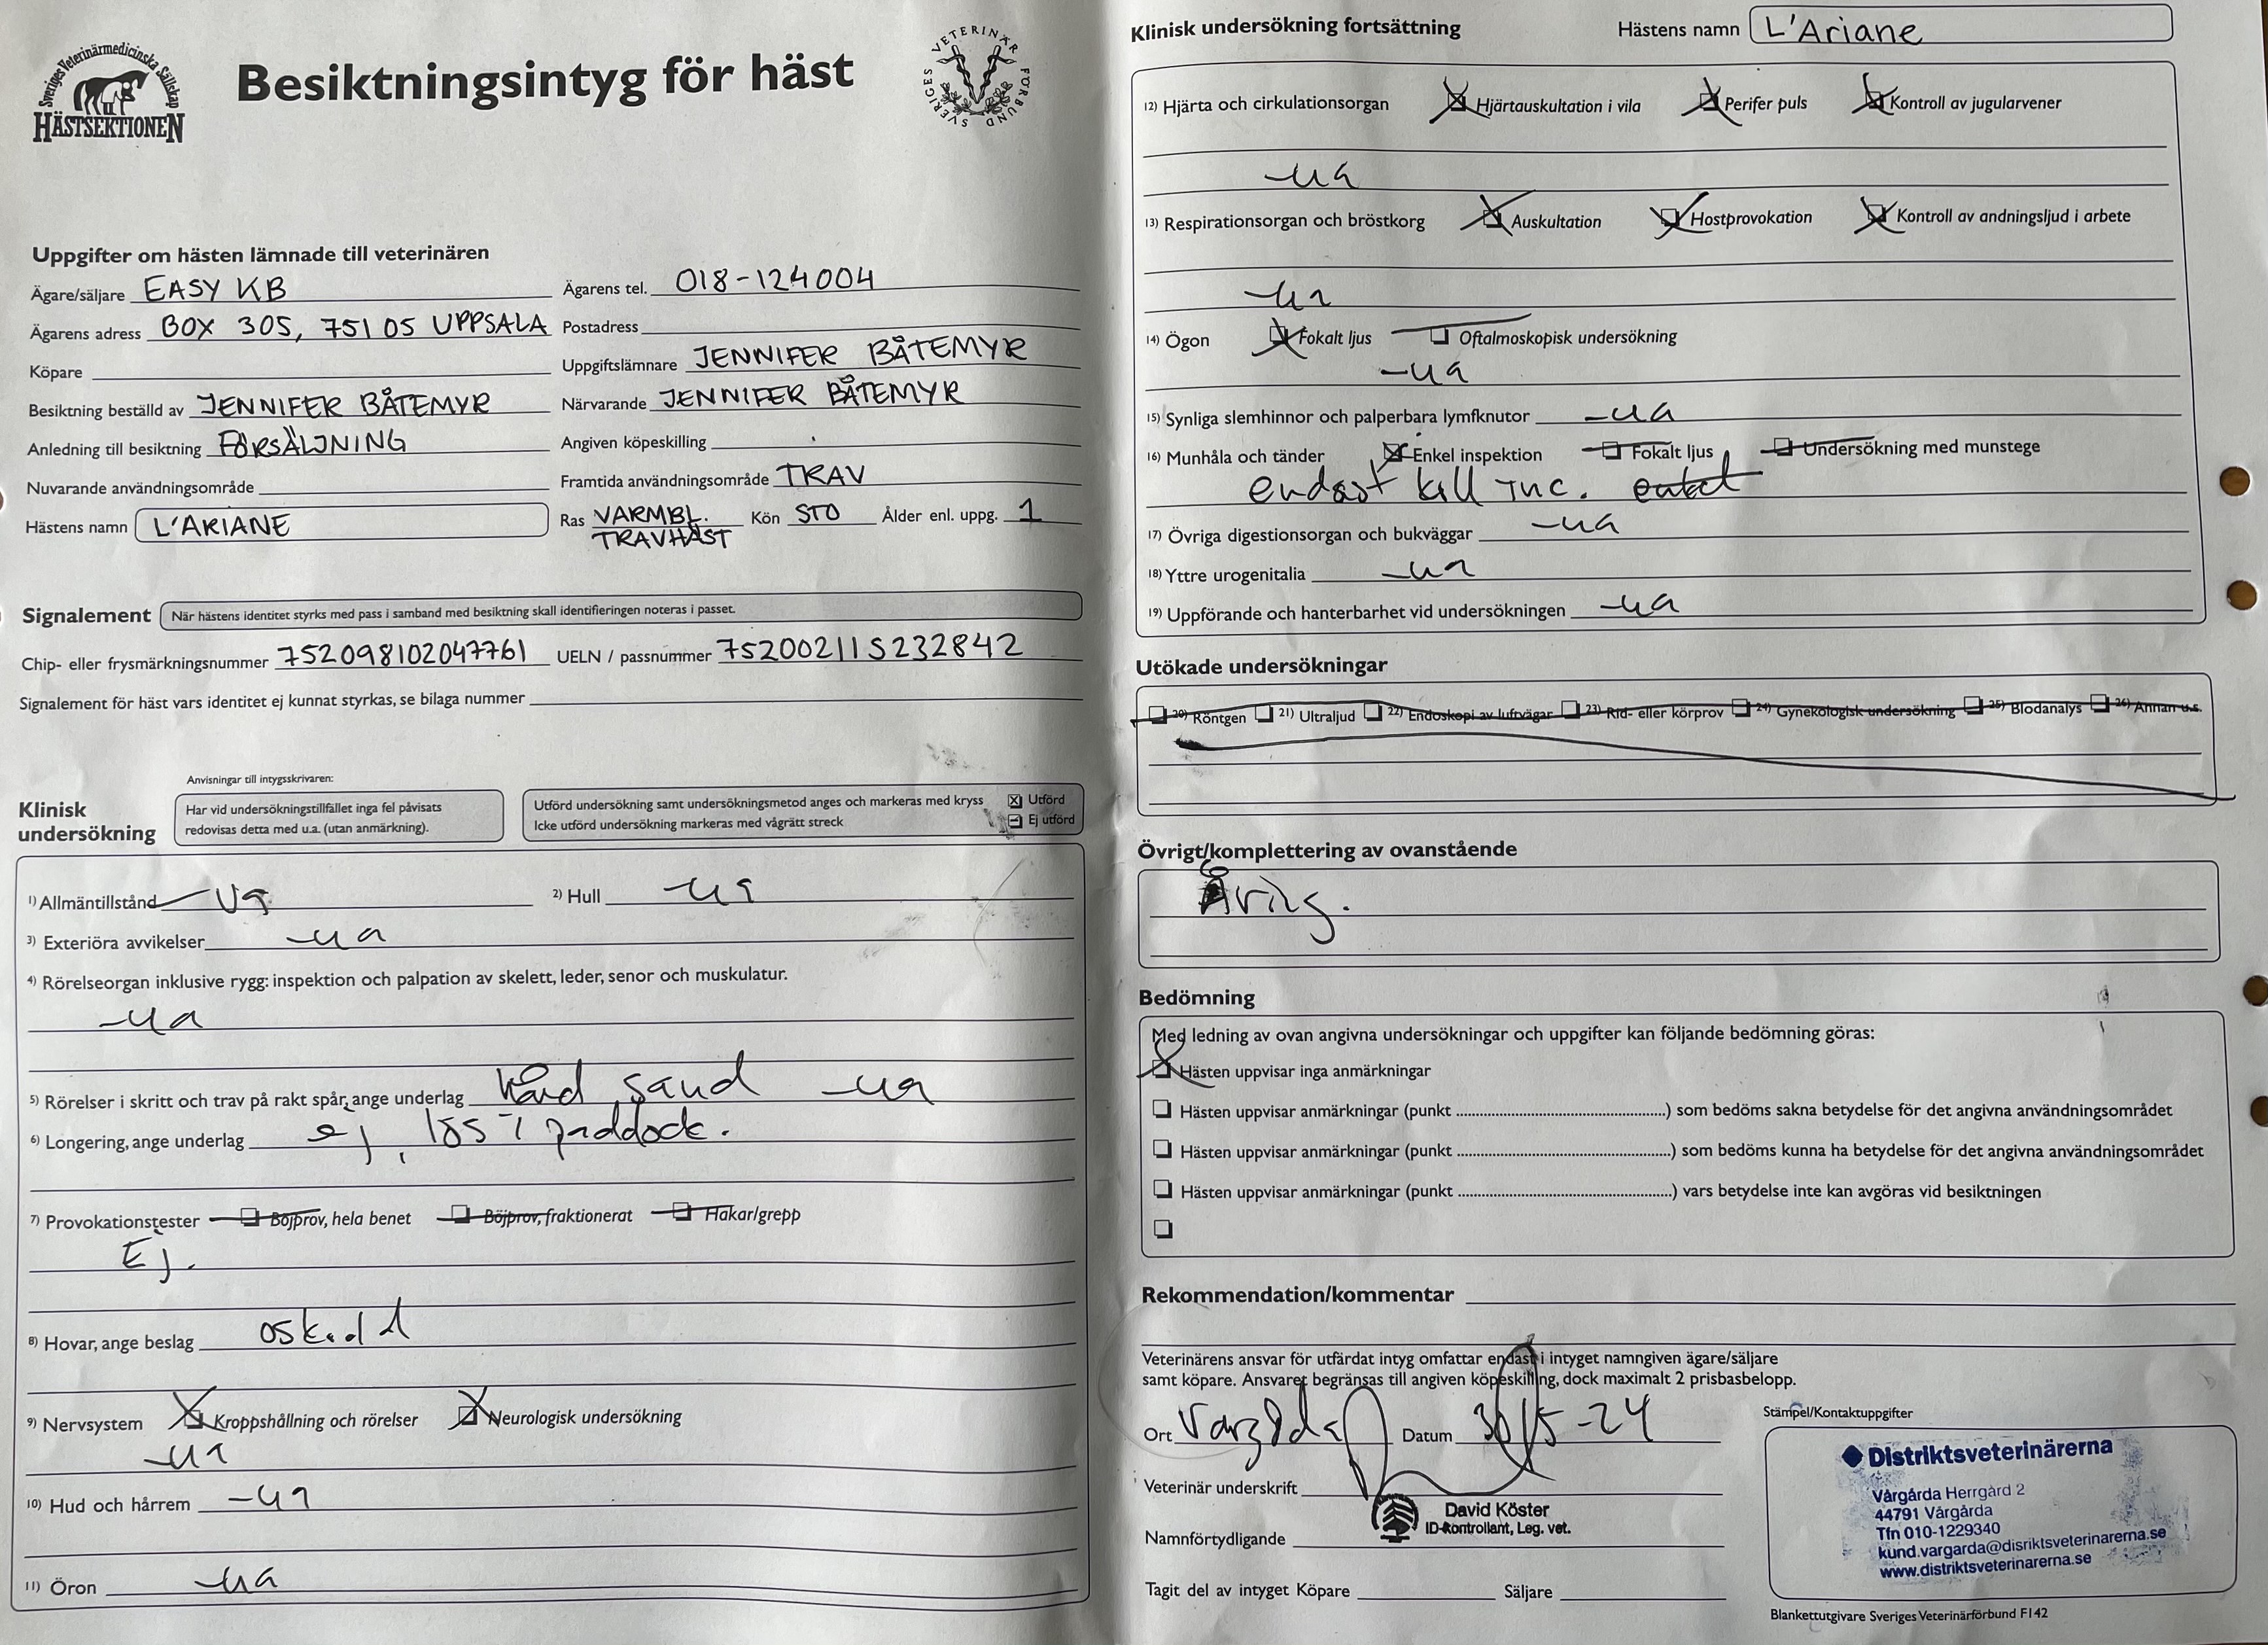 Sveriges Veterinärmedicinska Sällskap
HÄSTSEKTIONEN
Besiktningsintyg för häst
SVERIGES VETERINÄRFÖRBUND
Uppgifter om hästen lämnade till veterinären
Ägare/säljare EASY KB Ägarens tel. 018-124004
Ägarens adress BOX 305, 751 05 UPPSALA Postadress
Köpare Uppgiftslämnare JENNIFER BÅTEMYR
Besiktning beställd av JENNIFER BÅTEMYR Närvarande JENNIFER BÅTEMYR
Anledning till besiktning FÖRSÄLJNING Angiven köpeskilling
Nuvarande användningsområde Framtida användningsområde TRAV
Hästens namn L'ARIANE Ras VARMBL. TRAVHÄST Kön STO Ålder enl. uppg. 1
Signalement När hästens identitet styrks med pass i samband med besiktning skall identifieringen noteras i passet.
Chip- eller frysmärkningsnummer 752098102047761 UELN / passnummer 752002115232842
Signalement för häst vars identitet ej kunnat styrkas, se bilaga nummer
Anvisningar till intygsskrivaren:
Klinisk undersökning
Har vid undersökningstillfället inga fel påvisats
redovisas detta med u.a. (utan anmärkning).
Utförd undersökning samt undersökningsmetod anges och markeras med kryss Utförd
Icke utförd undersökning markeras med vågrätt streck Ej utförd
1) Allmäntillstånd ua 2) Hull ua
3) Exteriöra avvikelser ua
4) Rörelseorgan inklusive rygg: inspektion och palpation av skelett, leder, senor och muskulatur.
ua
5) Rörelser i skritt och trav på rakt spår, ange underlag hård sand ua
6) Longering, ange underlag ej, lös i paddock.
7) Provokationstester Böjprov, hela benet Böjprov, fraktionerat Hakar/grepp
Ej.
8) Hovar, ange beslag oskodd
9) Nervsystem Kroppshållning och rörelser Neurologisk undersökning
ua
10) Hud och hårrem ua
11) Öron ua
Klinisk undersökning fortsättning Hästens namn L'Ariane
12) Hjärta och cirkulationsorgan Hjärtauskultation i vila Perifer puls Kontroll av jugularvener
ua
13) Respirationsorgan och bröstkorg Auskultation Hostprovokation Kontroll av andningsljud i arbete
ua
14) Ögon Fokalt ljus Oftalmoskopisk undersökning
ua
15) Synliga slemhinnor och palperbara lymfknutor ua
16) Munhåla och tänder Enkel inspektion Fokalt ljus Undersökning med munstege
endast till inc.
17) Övriga digestionsorgan och bukväggar ua
18) Yttre urogenitalia ua
19) Uppförande och hanterbarhet vid undersökningen ua
Utökade undersökningar
20) Röntgen 21) Ultraljud 22) Endoskopi av luftvägar 23) Rid- eller körprov 24) Gynekologisk undersökning 25) Blodanalys 26) Annan u.s.
Övrigt/komplettering av ovanstående
Åring.
Bedömning
Med ledning av ovan angivna undersökningar och uppgifter kan följande bedömning göras:
Hästen uppvisar inga anmärkningar
Hästen uppvisar anmärkningar (punkt ..........) som bedöms sakna betydelse för det angivna användningsområdet
Hästen uppvisar anmärkningar (punkt ..........) som bedöms kunna ha betydelse för det angivna användningsområdet
Hästen uppvisar anmärkningar (punkt ..........) vars betydelse inte kan avgöras vid besiktningen
Rekommendation/kommentar
Veterinärens ansvar för utfärdat intyg omfattar endast i intyget namngiven ägare/säljare
samt köpare. Ansvaret begränsas till angiven köpeskilling, dock maximalt 2 prisbasbelopp.
Ort Vårgårda Datum 30/5-24
Veterinär underskrift
Namnförtydligande David Köster
ID-Kontrollant, Leg. vet.
Tagit del av intyget Köpare Säljare
Stämpel/Kontaktuppgifter
Distriktsveterinärerna
Vårgårda Herrgård 2
44791 Vårgårda
Tfn 010-1229340
kund.vargarda@disriktsveterinarerna.se
www.distriktsveterinarerna.se
Blankettutgivare Sveriges Veterinärförbund F142